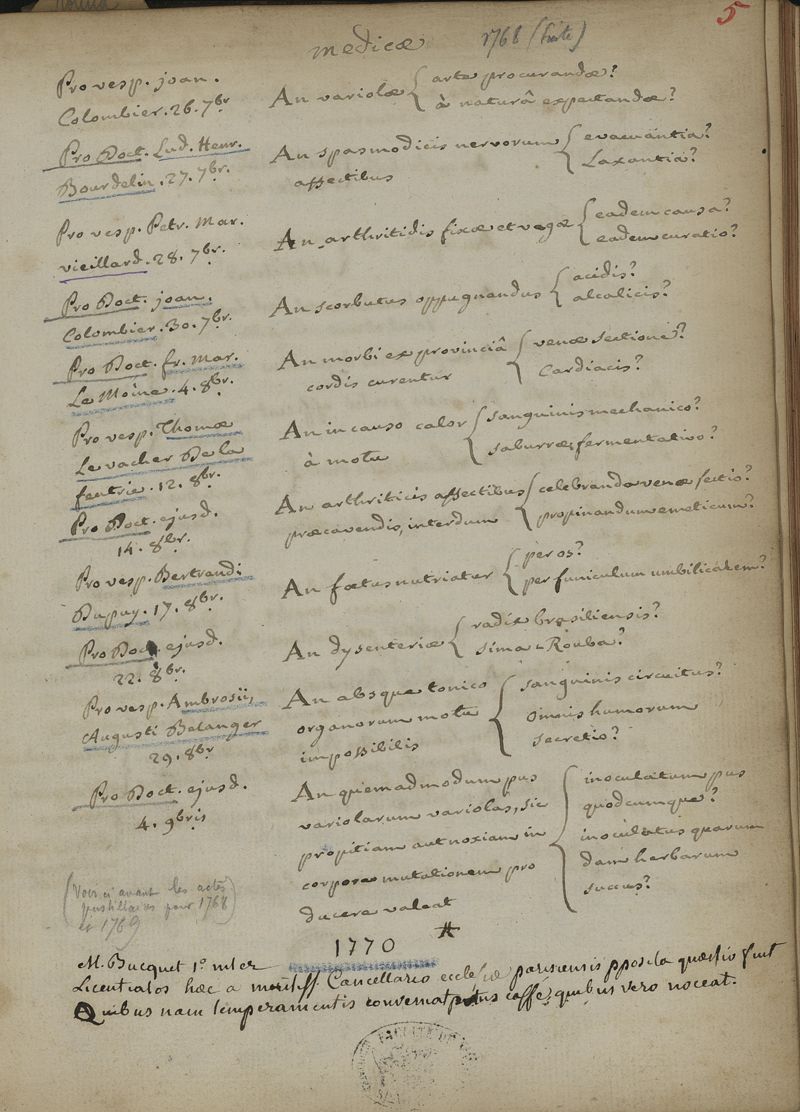 5
medicæ 1768 (suite)
Pro vesp. joan.
Colombier. 26. 7br
An variolæ { arte procurandæ?
à naturâ expectandæ?
Pro Doct. Lud. Henr.
Bourdelin. 27. 7br.
An spasmodicis nervorum { evacuantia?
affectibus laxantia?
Pro vesp. Petr. Mar.
vieillard. 28. 7br.
An arthritidis fixæ et vagæ { eadem causa?
eadem curatio?
Pro Doct. joan.
Colombier. 30. 7br.
An scorbutus oppugnandus { acidis?
alcalicis?
Pro Doct. fr. Mar.
Le Moine. 4. 8br.
An morbi ex provinciâ { venæ sectione?
cordis curentur Cardiacis?
Pro vesp. Thomæ
Levacher De la
feutrie. 12. 8br.
An in causo calor { sanguinis mechanico?
à motu saburræ fermentativo?
Pro Doct. ejusd.
14. 8br.
An arthriticis affectibus { celebranda venæ sectio?
præcavendis, interdum propinandum emeticum?
Pro vesp. Bertrandi
Dupuy. 17. 8br.
An fœtus nutriatur { per os?
per funiculum umbilicalem?
Pro Doct. ejusd.
22. 8br.
An dysenteriæ { radix brasiliensis?
sima-Rouba?
Pro vesp. Ambrosii,
Augusti Belanger
29. 8br
An absque tonico { sanguinis circuitus?
organorum motu omnis humorum
impossibilis secretio?
Pro Doct. ejusd.
4. 9bris
An quemadmodum pus { inoculatum pus
variolarum variolas, sic quodcumque?
propitiam aut noxiam in inoculatus quarum
corpore mutationem pro dam herbarum
ducere valeat succus?
(Voir ci avant les actes
pastillaires pour 1768
et 1769)
1770 #
M. Bucquet 1us inter
Licentiatos hæc a Cancellario ecclesiæ parisiensis pposita quæstio fuit
Quibus nam temperamentis conveniat potus caffe, quibus vero noceat.
FACULTÉ DE